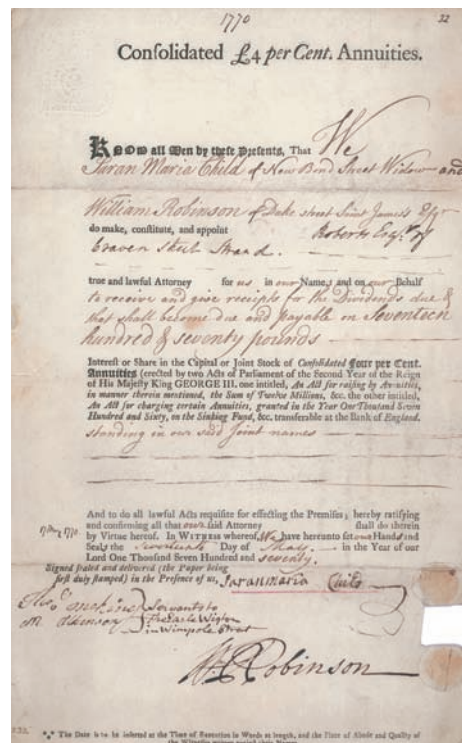 1770
32
Consolidated £4 per Cent. Annuities.
Know all Men by these Presents, That We
Saran Maria Child of New Bond Street Widow and
William Robinson of Duke street Saint James's Esqr
do make, constitute, and appoint Roberts Esqr of
Craven street Strand.
true and lawful Attorney for us in our Names and on our Behalf
to receive and give receipts for the Dividends due &
that shall become due and payable on Seventeen
hundred & seventy pounds
Interest or Share in the Capital or Joint Stock of Consolidated Four per Cent.
Annuities (erected by two Acts of Parliament of the Second Year of the Reign
of His Majesty King GEORGE III. one intitled, An Act for raising by Annuities,
in manner therein mentioned, the Sum of Twelve Millions, &c. the other intitled,
An Act for charging certain Annuities, granted in the Year One Thousand Seven
Hundred and Sixty, on the Sinking Fund, &c. transferable at the Bank of England.
standing in our said Joint names
And to do all lawful Acts requisite for effecting the Premises; hereby ratifying
and confirming all that our said Attorney shall do therein
by Virtue hereof. In WITNESS whereof We have hereunto set our Hands and
17 May 1770. Seals the Day of May in the Year of our
Lord One Thousand Seven Hundred and seventy.
Signed sealed and delivered (the Paper being
first duly stamped) in the Presence of us,
Saran Maria Child
Servants to
The Earle Wigton
in Wimpole Street
Wm Robinson
*** The Date is to be inserted at the Time of Execution in Words at length, and the Place of Abode and Quality of
the Witnesses